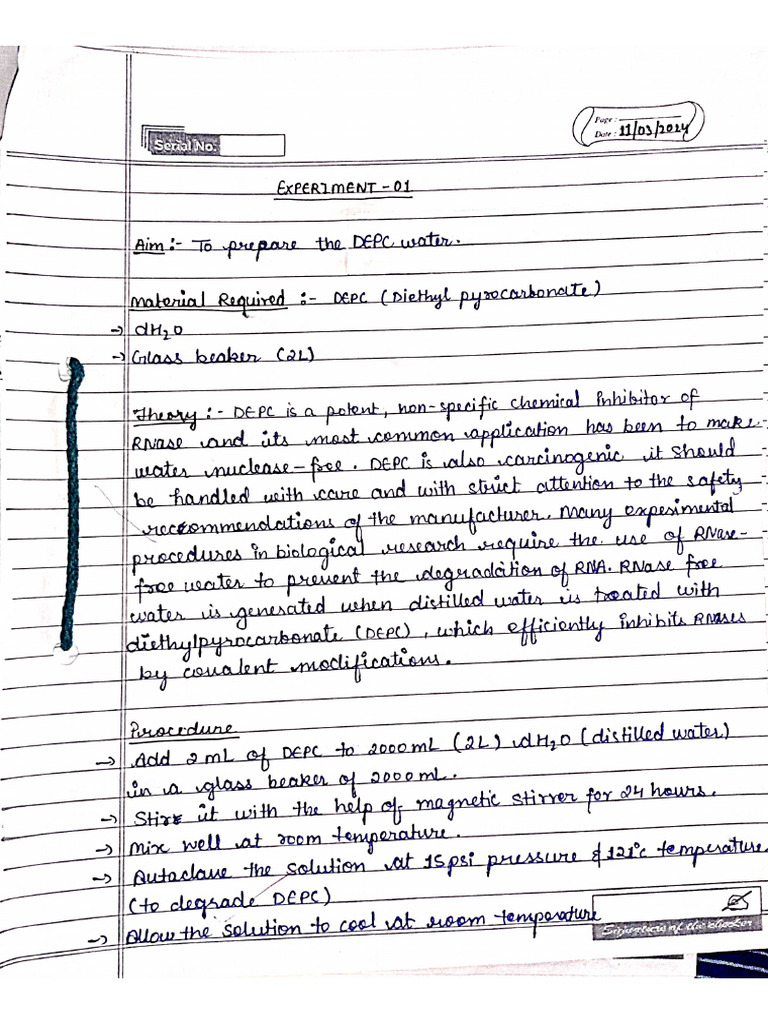 Page :
Date : 11/03/2024
Serial No.
EXPERIMENT - 01
Aim :- To prepare the DEPC water.
Material Required :- DEPC (Diethyl pyrocarbonate)
→ dH2O
→ Glass beaker (2L)
Theory :- DEPC is a potent, non-specific chemical inhibitor of
RNase and its most common application has been to make
water nuclease-free. DEPC is also carcinogenic it should
be handled with care and with strict attention to the safety
reccommendations of the manufacturer. Many experimental
procedures in biological research require the use of RNase-
free water to prevent the degradation of RNA. RNase free
water is generated when distilled water is treated with
diethylpyrocarbonate (DEPC), which efficiently inhibits RNases
by covalent modifications.
Procedure
→ Add 2 mL of DEPC to 2000mL (2L) dH2O (distilled water)
in a glass beaker of 2000mL.
→ Stir it with the help of magnetic stirrer for 24 hours.
→ Mix well at room temperature.
→ Autoclave the solution at 15psi pressure & 121°c temperature
(to degrade DEPC)
→ Allow the solution to cool at room temperature
Signature of the checker